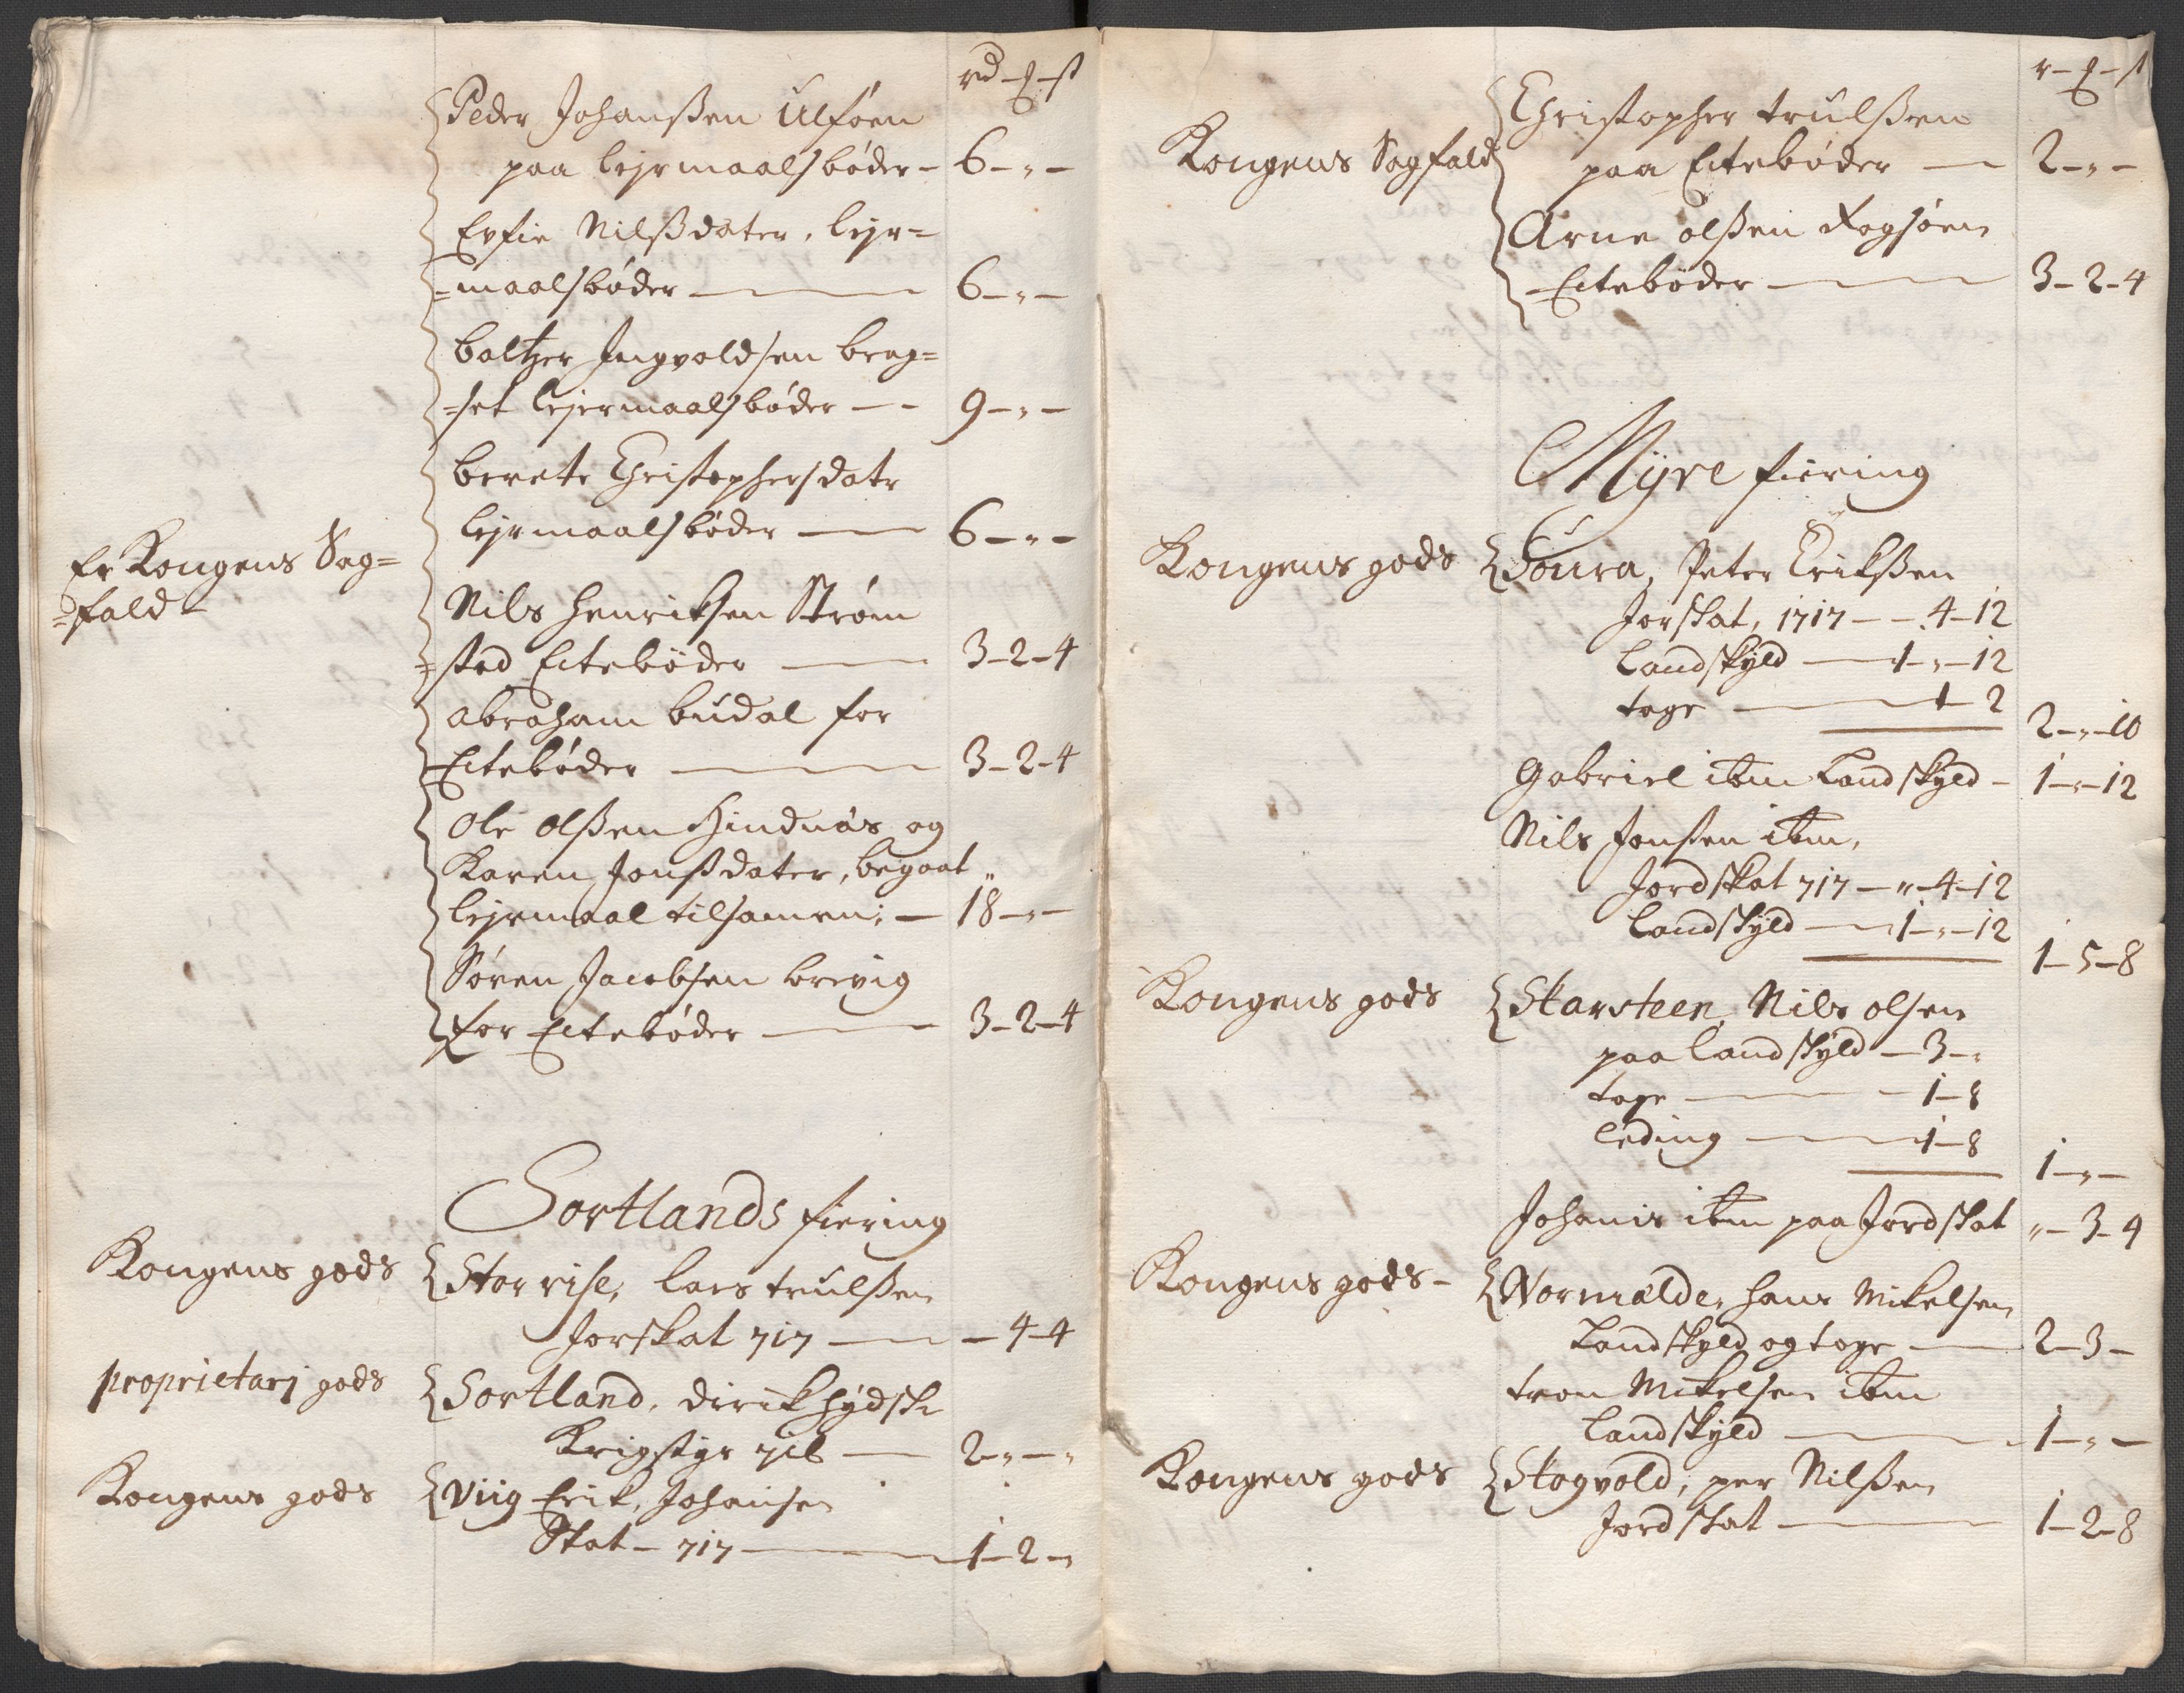 rd - ẞ - st
Peder Johanßen Ulføen
paa lejrmaals bøder - 6 - „ -
Nilßdater, lejr=
=maals bøder - 6 - „ -
baltzer Ingvoldsen brag=
=set lejermaals bøder - - 9 - „ -
berete Christophersdatr
lejrmaals bøder - 6 - „ -
Er Kongens Sag=
=fald
Nils Henriksen Strøm
=sted Eitebøder - 3 - 2 - 4
Abraham budal for
Eitebøder - 3 - 2 - 4
Ole Olßen Hindnås og
Karen Jonßdater, begaat
lejrmaal tilsamen: - 18 - „ -
Søren Jacobsen brevig
for Eitebøder - 3 - 2 - 4
Sortlands fiering
Kongens gods Storrise, lars trulßen
Jorskat 717 - - 4 - 4
proprietarj gods Sortland, dirik hÿdske
Krigstyr 716 - 2 - „ - „
Kongens gods Viig Erik Johansen
Skat - 717 - 1 - 2 -
r - ẞ - st
Kongens Sagfald Christopher trulßen
paa Eitebøder - 2 - „ -
Arne olßen Fogsøen
Eitebøder - 3 - 2 - 4
Myre fiering
Kongens gods Soura, Peter Erikßen
Jorskat, 1717 - - 4 - 12
Landskyld - 1 - „ - 12
tage - 1 - 2
2 - „ - 10
Gabriel ibm Landskyld - 1 - „ - 12
Nils Jonsen ibm,
Jordskat 717 - „ - 4 - 12
Landskyld - 1 - „ - 12
1 - 5 - 8
Kongens gods Skarsteen, Nils olsen
paa Landskyld - 3 - „
tage - - 1 - 8
leding - 1 - 8
1 - „ -
Johanis ibm paa Jordskat „ - 3 - 4
Kongens gods - Normælde, hans Mikelsen
Landskyld og tage - 2 - 3 -
tron Mikelsen ibm
Landskyld - 1 - „ -
Kongens gods Skogvold, per Nilßen
Jordskat - 1 - 2 - 8